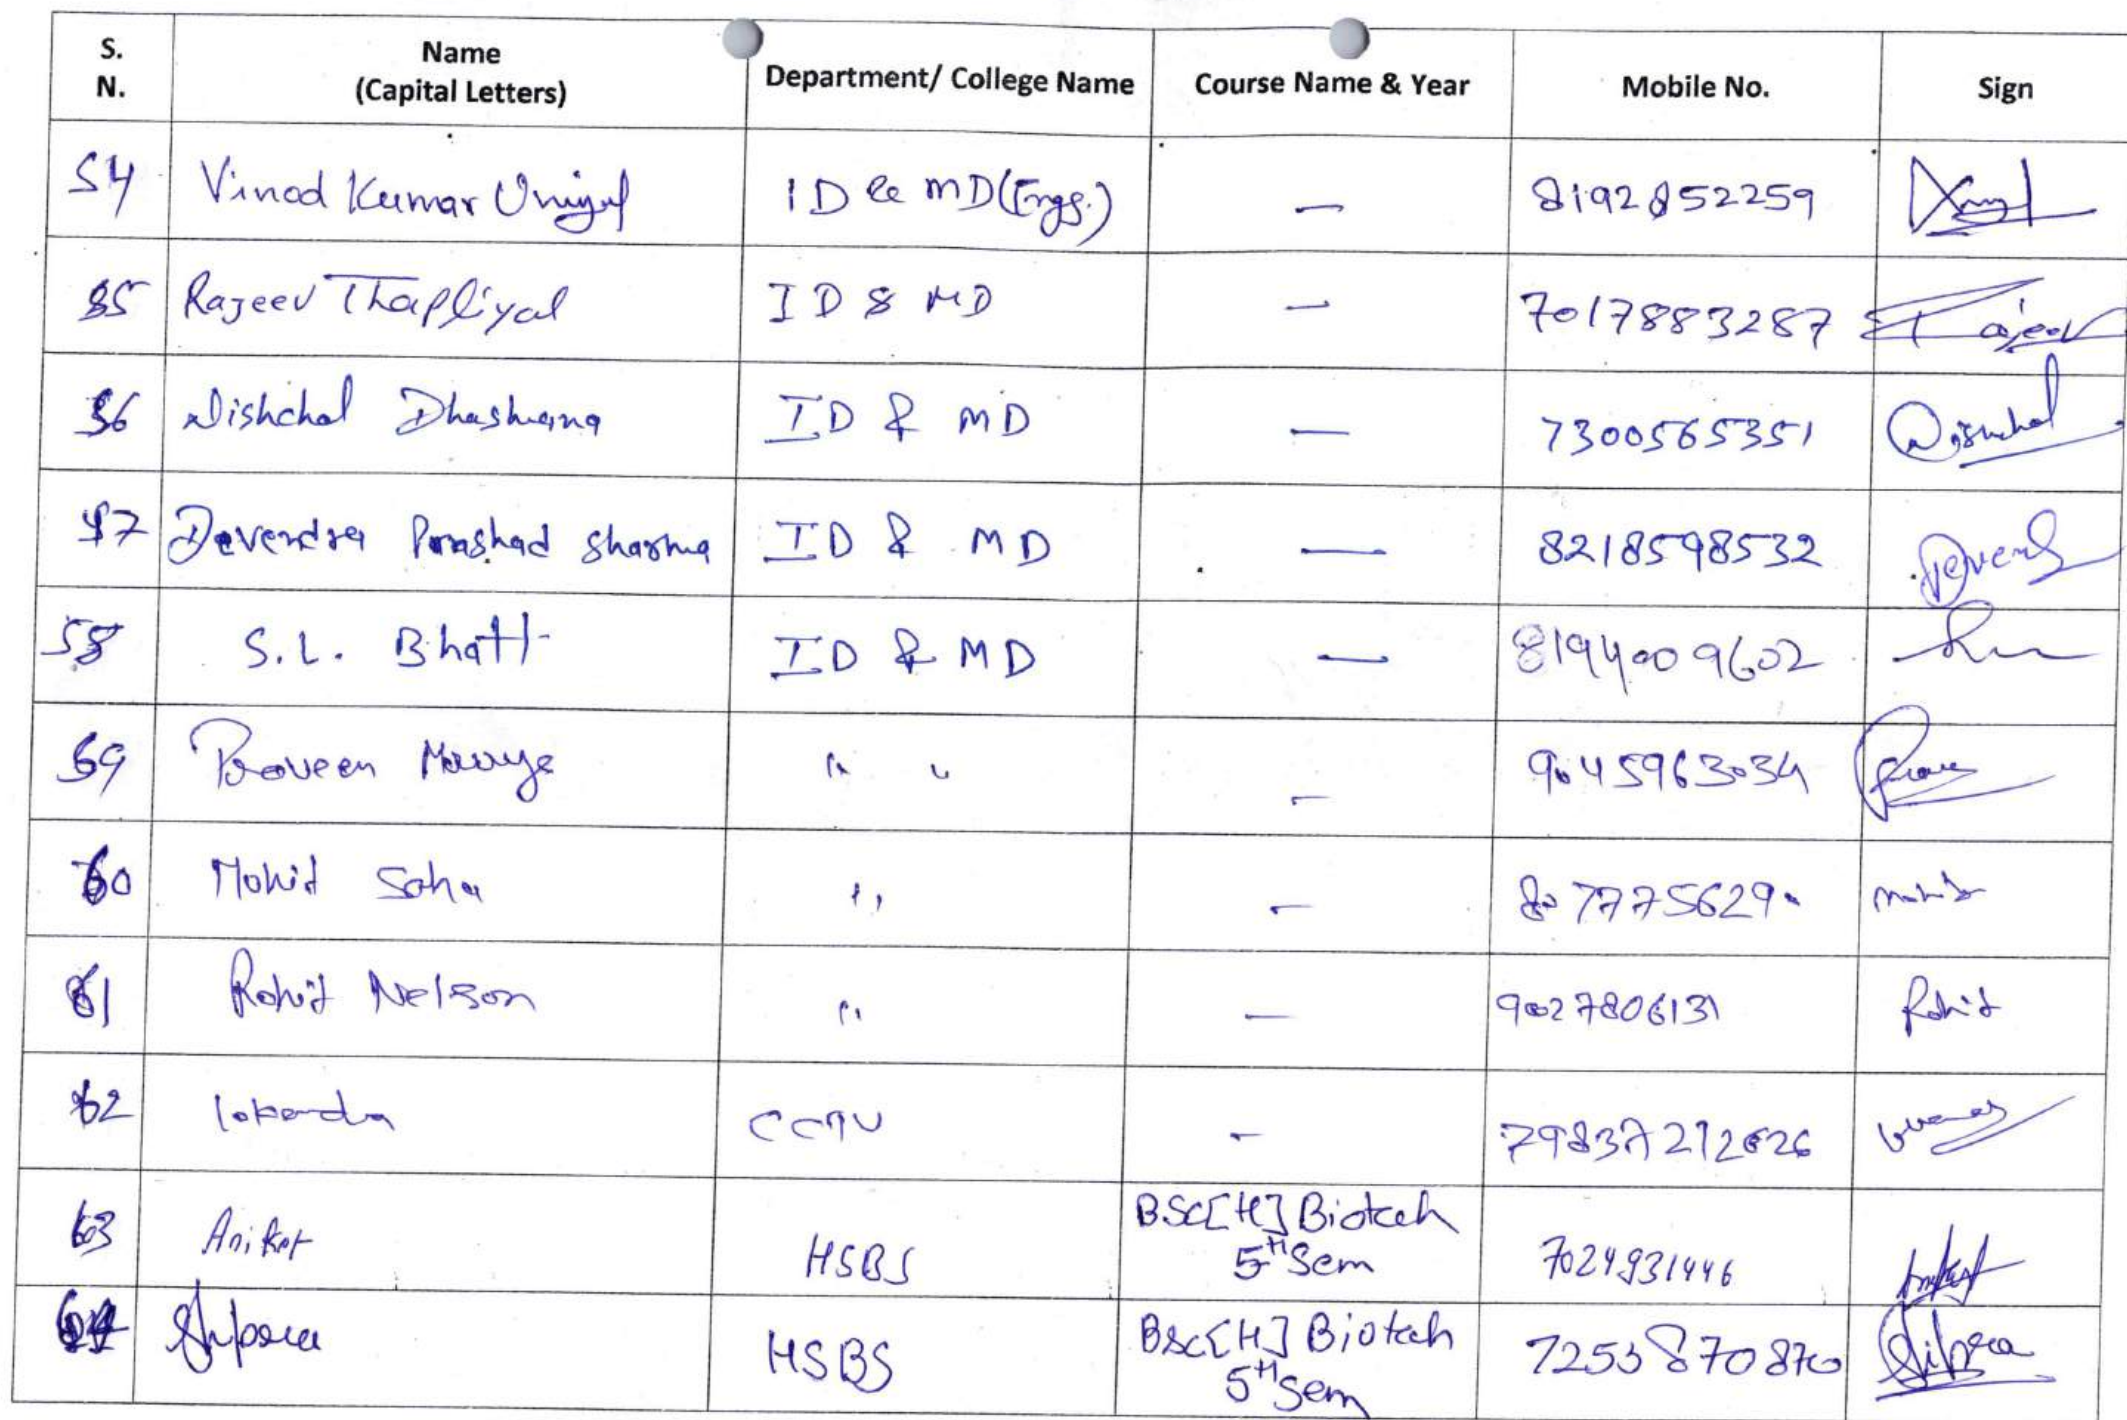 S. N. Name (Capital Letters) Department/ College Name Course Name & Year Mobile No. Sign
54 Vinod Kumar Uniyal ID & MD (Engg.) — 8192852259
55 Rajeev Thapliyal ID & MD — 7017883287 Rajeev
56 Nishchal Dhashmana ID & MD — 7300565351 Nishchal
57 Devendra Prashad Sharma ID & MD — 8218598532
58 S.L. Bhatt ID & MD — 8194009602
59 Praveen Maurya " " — 9045963034
60 Mohit Saha " — 8077756290 Mohit
61 Rohit Nelson " — 9027806131 Rohit
62 lokendra —
63 Aniket HSBS BSc[H] Biotech 5TH Sem 7024931446 Aniket
64 Shipra HSBS BSc[H] Biotech 5TH Sem 7253870870 Shipra